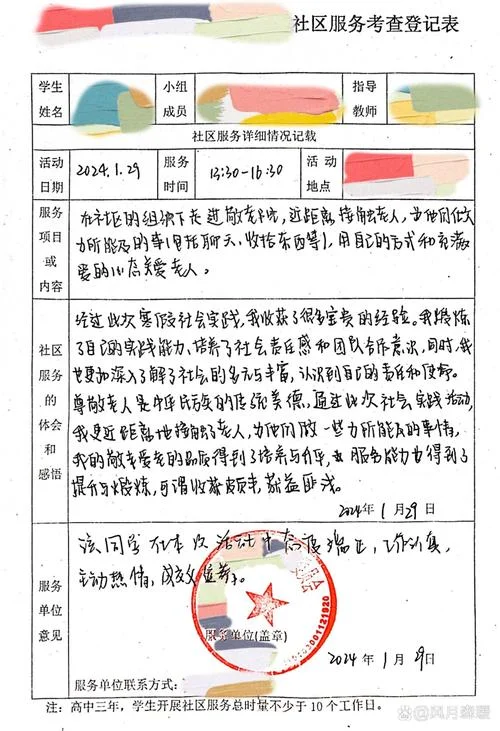 社区服务考查登记表
学生姓名
小组成员
指导教师
社区服务详细情况记载
活动日期
2024.1.29
服务时间
13:30-16:30
活动地点
服务项目或内容
在社区的组织下走进敬老院,近距离接触老人,为他们做
力所能及的事(包括聊天、收拾东西等),用自己的方式和充满
爱的心态关爱老人。
社区服务的体会和感悟
经过此次寒假社会实践,我收获了很多宝贵的经验。我锻炼
了自己的实践能力、培养了社会责任感和团队合作意识,同时,我
也更加深入了解了社会的多元与丰富,认识到自己的责任和使命。
尊敬老人是中华民族的传统美德,通过此次社会实践活动,
我更近距离地接触了老人,为他们做一些力所能及的事情,
我的敬老爱老的品质得到了培养与升华,服务能力也得到了
提升与锻炼,可谓收获颇丰,获益匪浅。
2024年1月29日
服务单位意见
该同学在本次活动中态度端正,工作认真,
主动热情,成效显著。
服务单位(盖章)
2024年1月29日
服务单位联系方式:
注:高中三年,学生开展社区服务总时量不少于10个工作日。